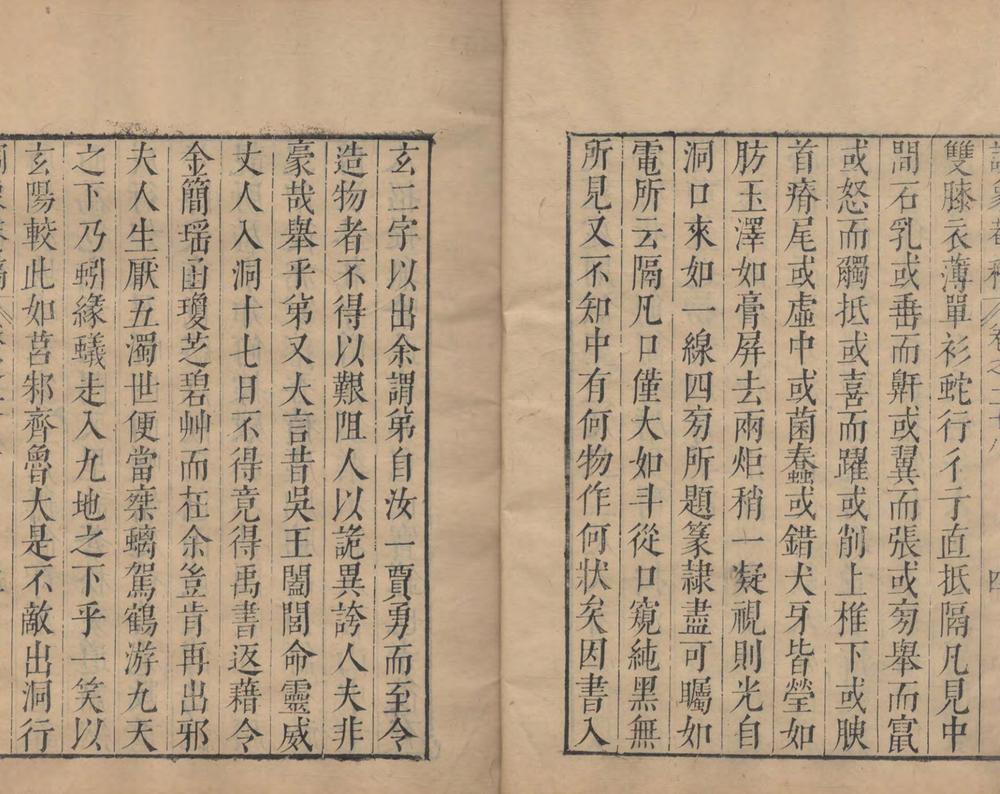 卷之二十八 四
雙膝衣薄單衫蛇行彳亍直抵隔凡見中
間石乳或垂而鼾或翼而張或旁舉而竄
或怒而觸抵或喜而躍或削上椎下或腴
首瘠尾或虛中或菌蠢或錯犬牙皆瑩如
肪玉澤如膏屏去兩炬稍一凝視則光自
洞口來如一線四旁所題篆隸盡可矚如
電所云隔凡口僅大如斗從口窺純黑無
所見又不知中有何物作何狀矣因書入
玄二字以出余謂弟自汝一賈勇而至令
造物者不得以艱阻人以詭異誇人夫非
豪哉舉乎弟又大言昔吳王闔閭命靈威
丈人入洞十七日不得竟得禹書返藉令
金簡瑶函瓊芝碧艸而在余豈肯再出邪
夫人生厭五濁世便當驂螭駕鶴游九天
之下乃蚓緣蟻走入九地之下乎一笑以
玄陽較此如莒邾齊魯大是不敵出洞行